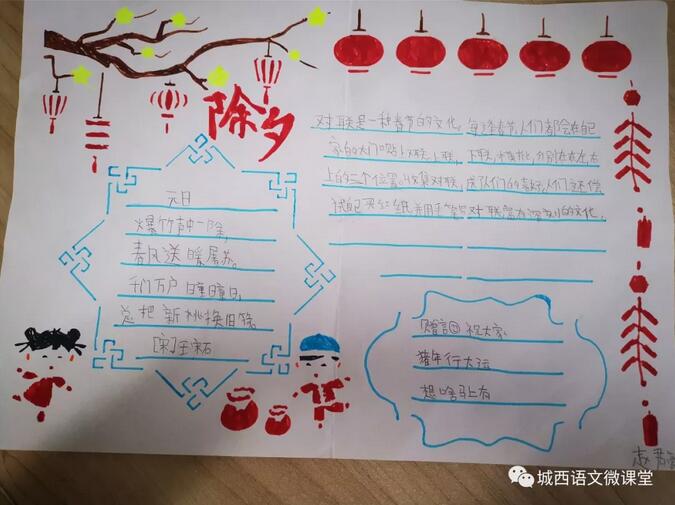 除夕
元日
爆竹声中一岁除,
春风送暖屠苏。
千门万户曈曈日,
总把新桃换旧符。
[宋]王安石
对联是一种春节的文化。每逢春节,人们都会在自
家的大门贴上对联,上联、下联、横批,分别在左右
上的三个位置。收集对联,成了人们的喜好,人们还
试纸并用毛笔写对联富有深刻的文化。
赠言 祝大家:
猪年行大运
想啥马上有
城西语文微课堂